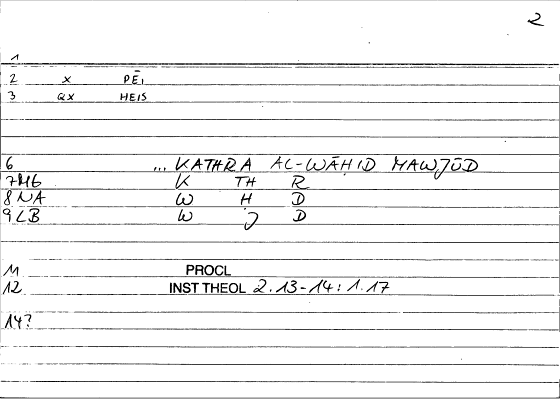 2
1
2 X PĒI
3 QX HEIS
6 ... KATHRA AL-WĀḤID MAWJŪD
7 M6 K TH R
8 NA W H D
9 LB W J D
11 PROCL
12 INST THEOL 2.13-14: 1.17
14?